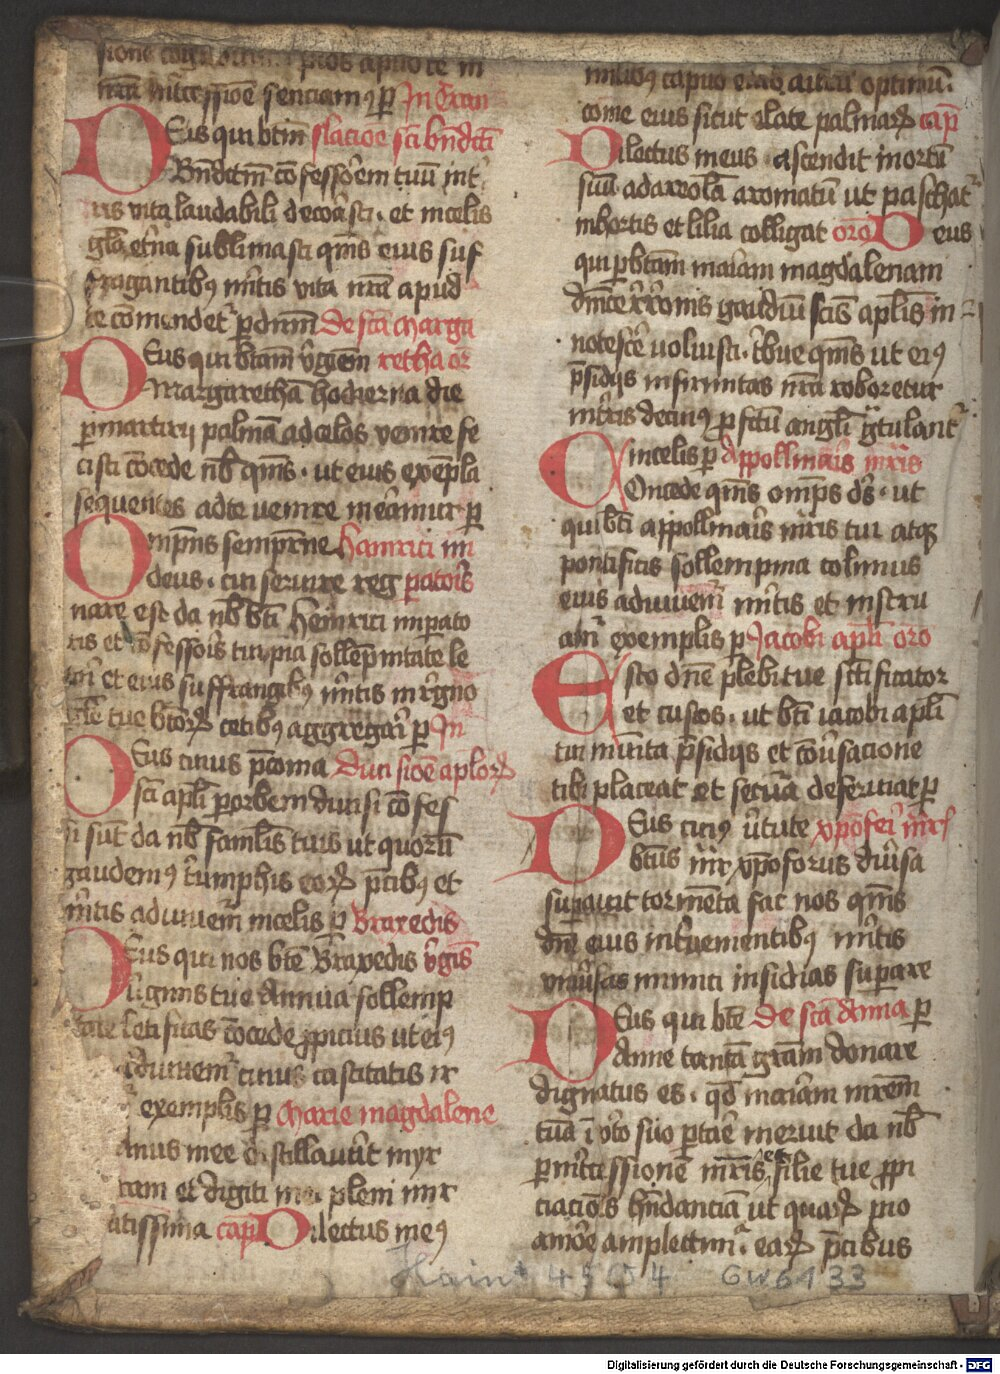 nram intcessione senciamus per In Translacione sci bndicti
Deus qui btm
Bndictm confessorem tuum int
ris vita laudabili decorasti et in celis
gla etna sublimasti qms eius suf
fragantibus mritis vita nra apud
te comendet per dnm De sca Marga
Deus qui btam vgem retha or
Margaretham hodierna die
per martirii palmam ad celos venire fe
cisti concede nb qms . ut eius exempla
sequentes ad te venire mereamur per
Omps sempitne Hainrici im
deus . cui servire reg patoris
nare est da nb bti Heinrici imperato
ris et confessoris tui pia sollempnitate le
tari et eius suffragibus mritis in regno
tue btorum cetibus aggregari per In
Deus cuius per coma Divisione aplorum
sci apli per orbem divisi confes
si sunt da nb famlis tuis ut quorum
gaudemus triumphis eorum pcibus et
mritis adiuvem in celis per Braxedis
Deus qui nos bte Braxedis vgis
virginis tue annua sollemp
tate letificas concede propicius ut eius
adiuvem cuius castitatis ir
exemplis per Marie magdalene
anus mee distillaverunt myr
ram et digiti mei pleni mir
atissima cap Dilectus meus
milibus caput eius aurum optimum .
come eius sicut elate palmarum cap
Dilectus meus ascendit in ortum
suum ad areolam aromatum ut paschatur
in hortis et lilia colligat oro Deus
qui per btam mariam magdalenam
dnice resurrectionis gaudium scis aplis in
notescere voluisti . tribue qms ut eius
psidiis infirmitas nra roboretur
meritis de cuius perfectum angli gratulantur
in celis per Appollinaris mris
Concede qms omps ds . ut
qui bti appollinaris mris tui atque
pontificis sollempnia colimus
eius adiuvemur mritis et instru
amur exemplis per Jacobi apli oro
Esto dne plebi tue sctificator
et custos . ut bti iacobi apli
tui munita psidiis et conversacione
tibi placeat et secura deserviat per
Deus cuius virtute xpoferi mris
btus mr xpoforus diversa
superavit tormenta fac nos qms
dne eius intervenientibus mritis
universas inimici insidias superare
Deus qui bte De sca Anna per
Anne tantam gram donare
dignatus es . quod mariam mrem
tuam in utero suo portare meruit da nb
per intercessionem mris et filie tue propi
ciacionis habundanciam ut quarum pio
amore amplectimur . earum pcibus
Hain* 4504 GW 6133
Digitalisierung gefördert durch die Deutsche Forschungsgemeinschaft - DFG